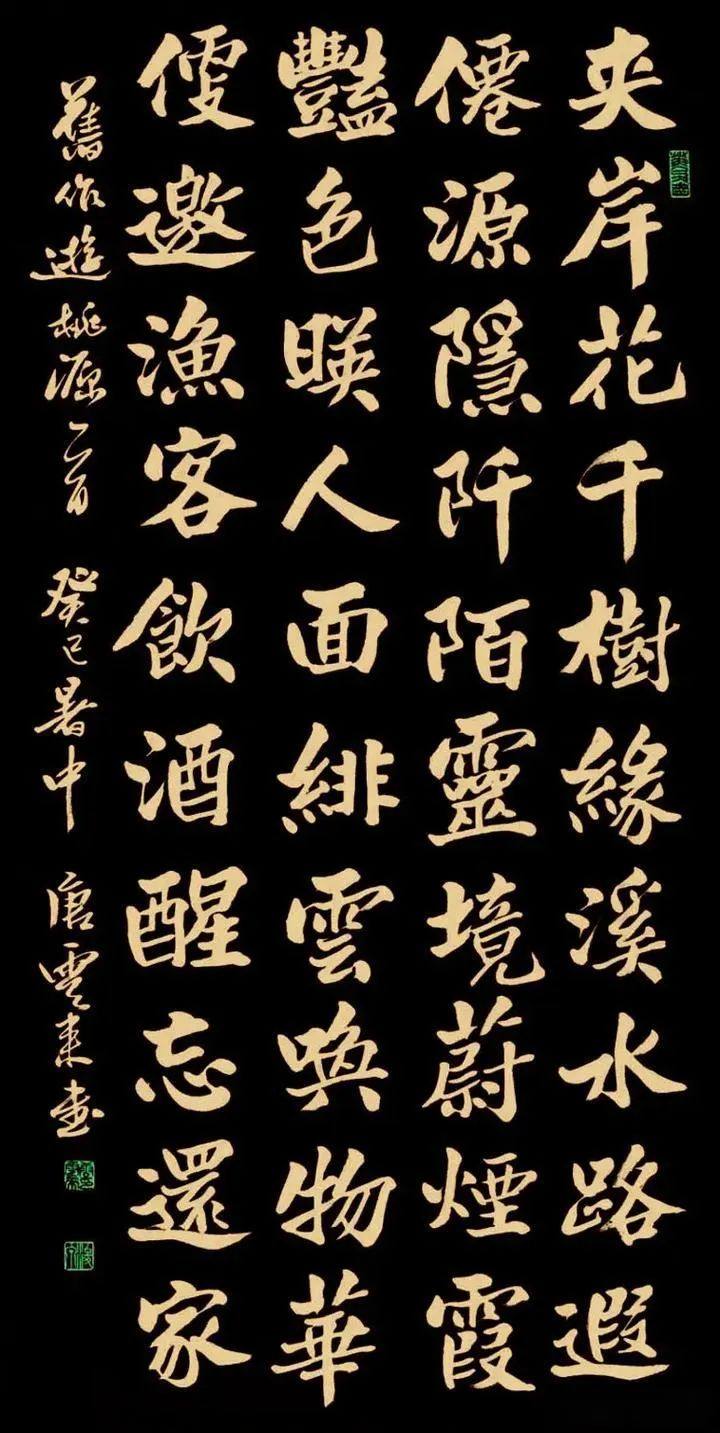 夾岸花千樹緣溪水路遐
僊源隱阡陌靈境蔚煙霞
豔色暎人面緋雲喚物華
便邀漁客飲酒醒忘還家
舊作遊桃源一首 癸巳暑中 唐雲來書